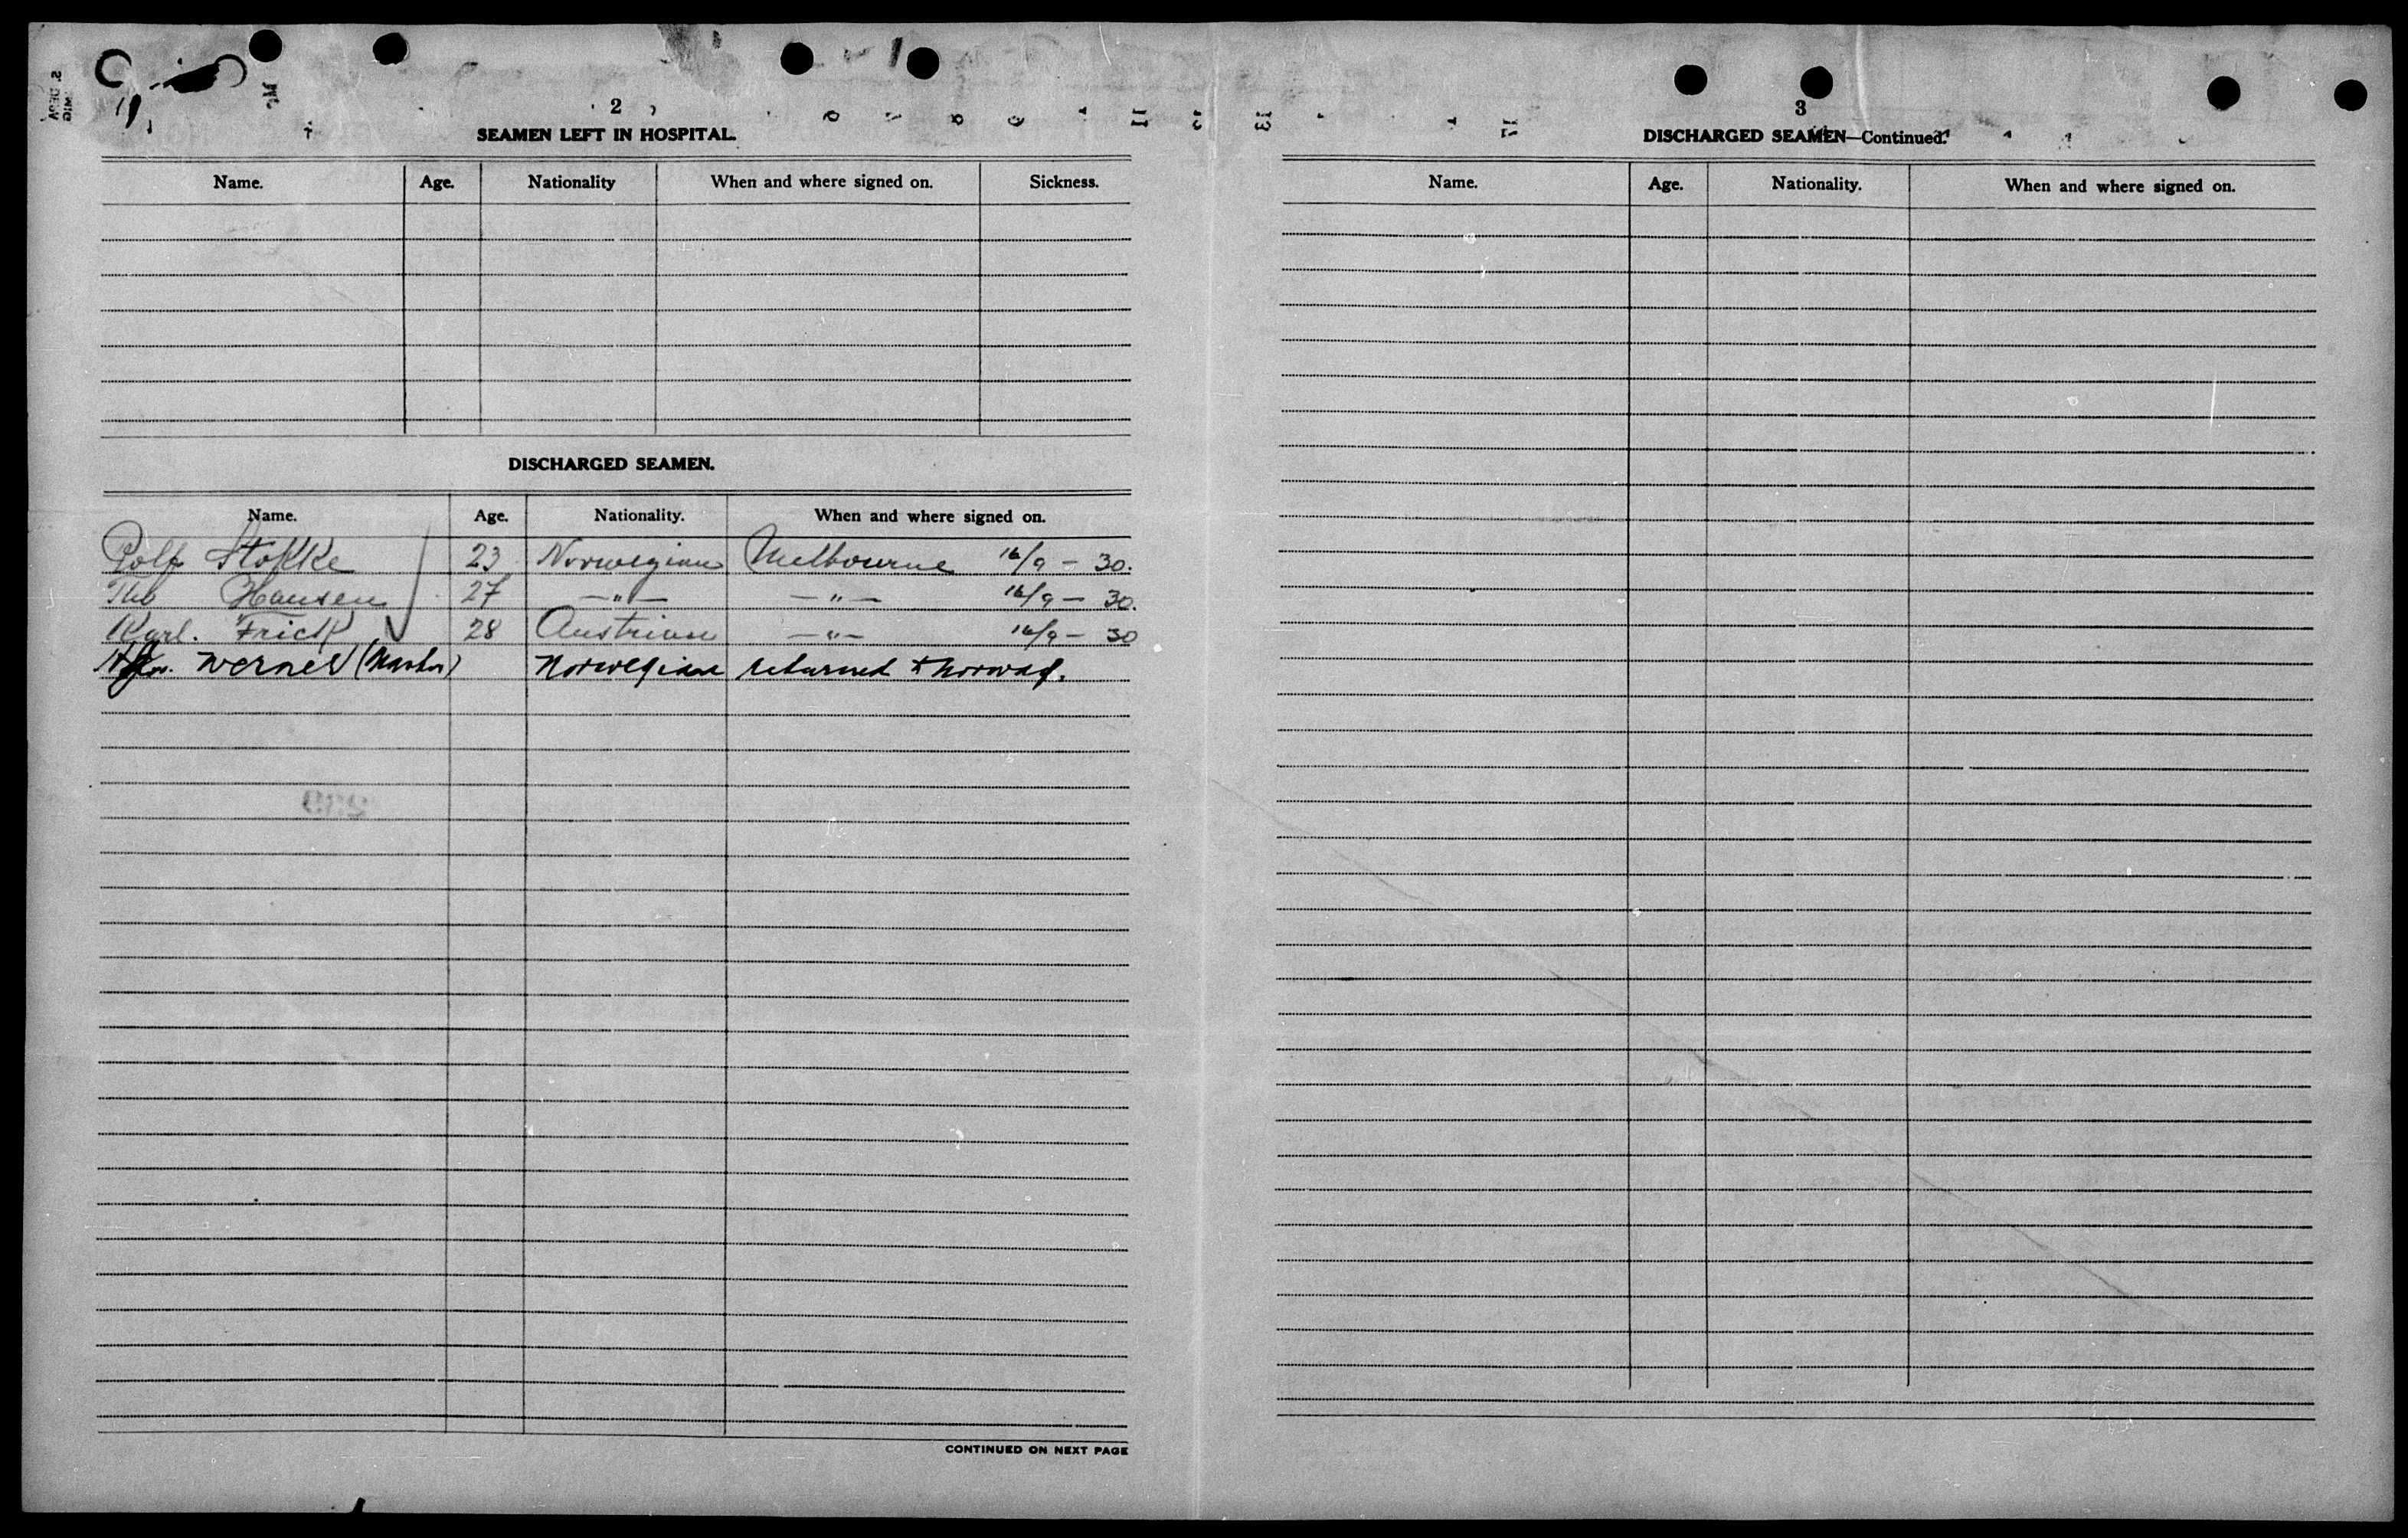 2
SEAMEN LEFT IN HOSPITAL.
Name. Age. Nationality When and where signed on. Sickness.
DISCHARGED SEAMEN.
Name. Age. Nationality. When and where signed on.
Rolf Stokke 23 Norwegian Melbourne 16/9 - 30.
Tho Hansen 27 -"- -"- 16/9 - 30.
Karl. Frick 28 Austrian -"- 16/9 - 30
Werner (Master) Norwegian returned to Norway.
CONTINUED ON NEXT PAGE
3
DISCHARGED SEAMEN—Continued.
Name. Age. Nationality. When and where signed on.